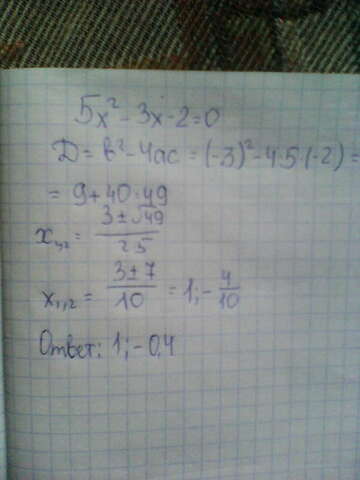 5x² - 3x - 2 = 0
D = b² - 4ac = (-3)² - 4·5·(-2) =
= 9 + 40 = 49
x₁,₂ = (3 ± √49)/(2·5)
x₁,₂ = (3 ± 7)/10 = 1; -4/10
Ответ: 1; -0,4